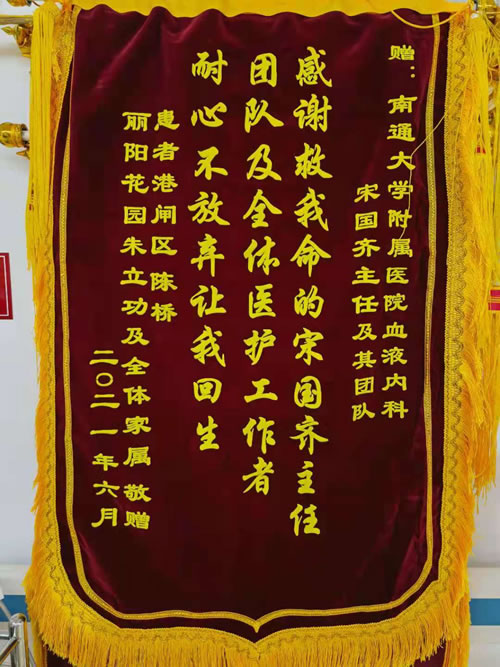 赠：南通大学附属医院血液内科
宋国齐主任及其团队
感谢救我命的宋国齐主任
团队及全体医护工作者
耐心不放弃让我回生
患者港闸区陈桥
丽阳花园朱立功及全体家属敬赠
二〇二一年六月